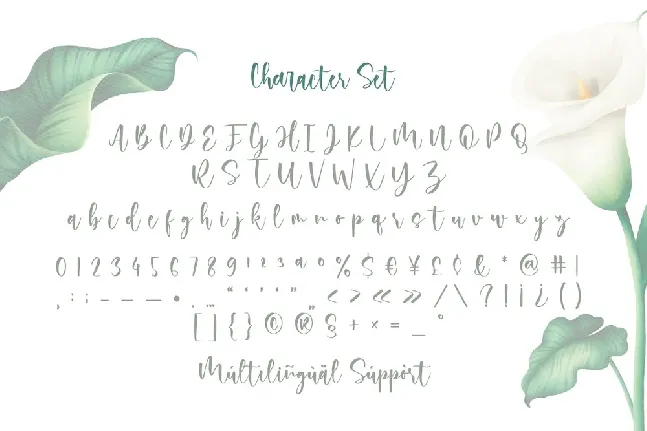 Character Set
A B C D E F G H I J K L M N O P Q
R S T U V W X Y Z
a b c d e f g h i j k l m n o p q r s t u v w x y z
0 1 2 3 4 5 6 7 8 9 ¹ ² ³ ª º % $ € ¥ £ ¢ & * @ # |
, : ; - – — • . … “ ‘ ’ ‚ ” „ < > « » / \ ? ! ¡ ¿ ( )
[ ] { } © ® § + × = _ °
Múltilingùäl Súppórt